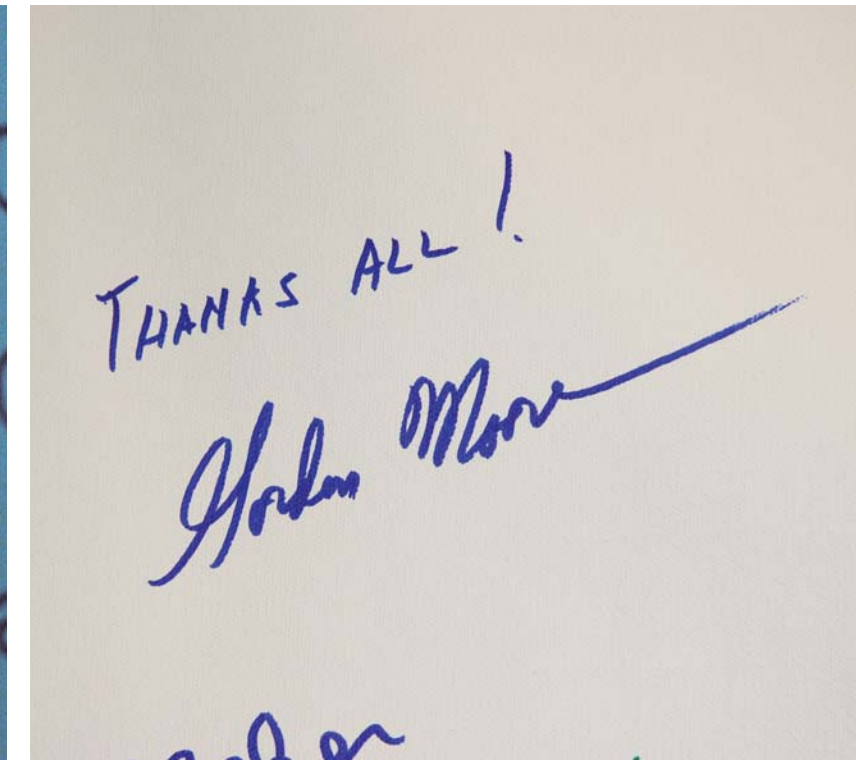 THANKS ALL!
Gordon Moore